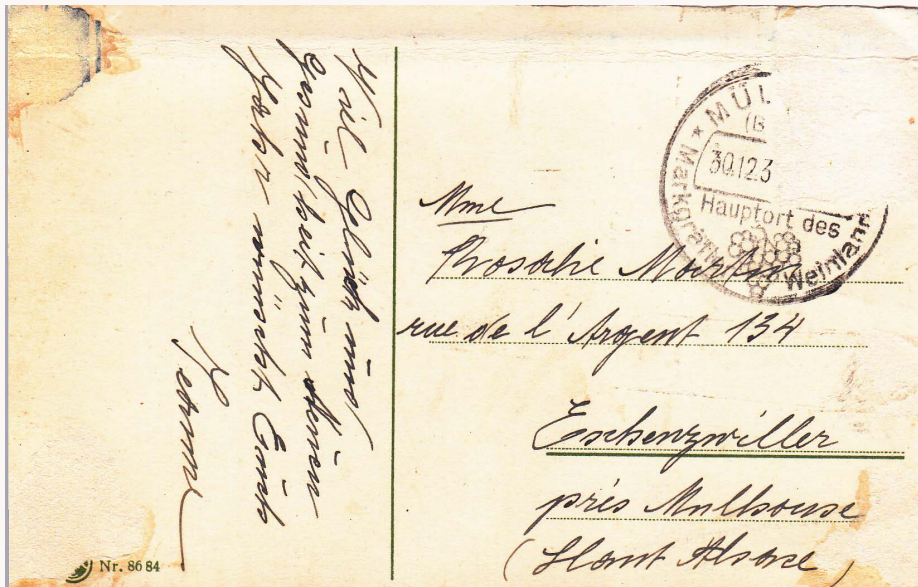 Viel Glück und
Gesundheit zum Neuen
Jahr wünscht Euch
Nr. 8684
MÜL
(B
30.12.3
Hauptort des
Markgräfl
Weinland
Mme
Rosalie Martin
rue de l'Argent 134
Eschenzwiller
près Mulhouse
(Haut Alsace)